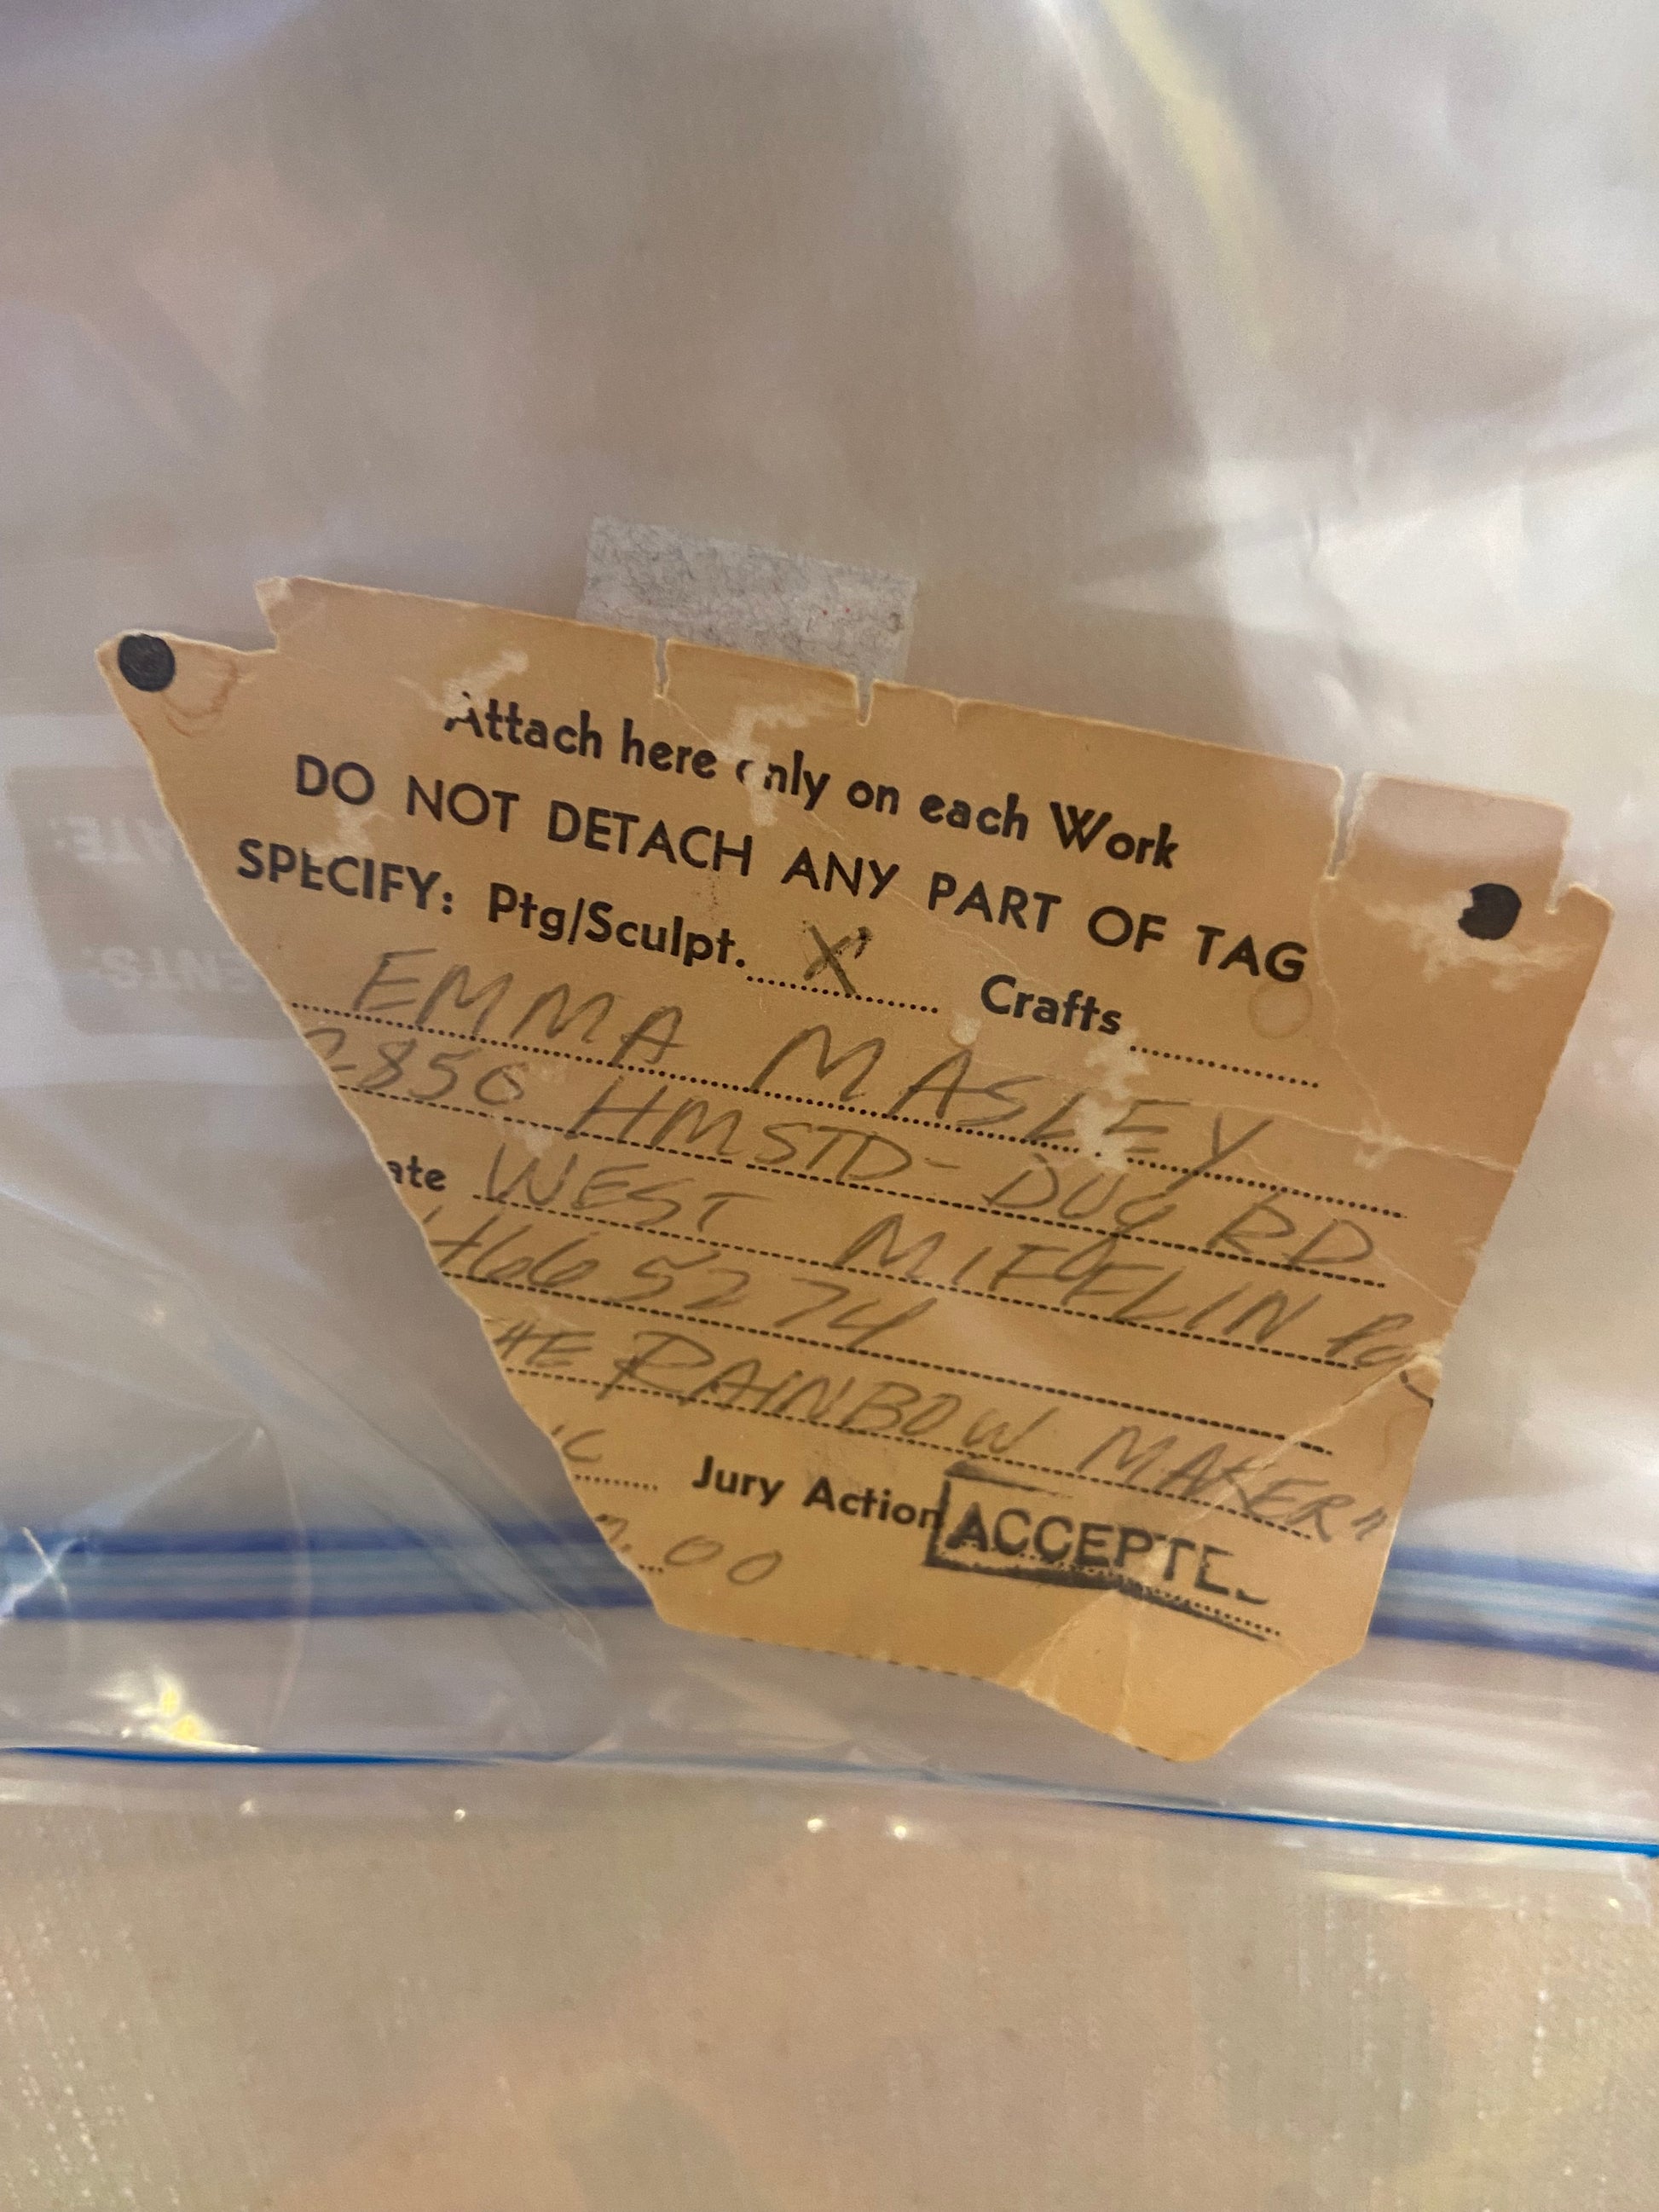 Attach here only on each Work
DO NOT DETACH ANY PART OF TAG
SPECIFY: Ptg/Sculpt. X Crafts
EMMA MASLEY
2850 HMSTD-DUQ RD
ate WEST MIFFLIN Pa
466 5274
HE RAINBOW MAKER"
IC Jury Action ACCEPTE
.00
ATE:
ENTS: